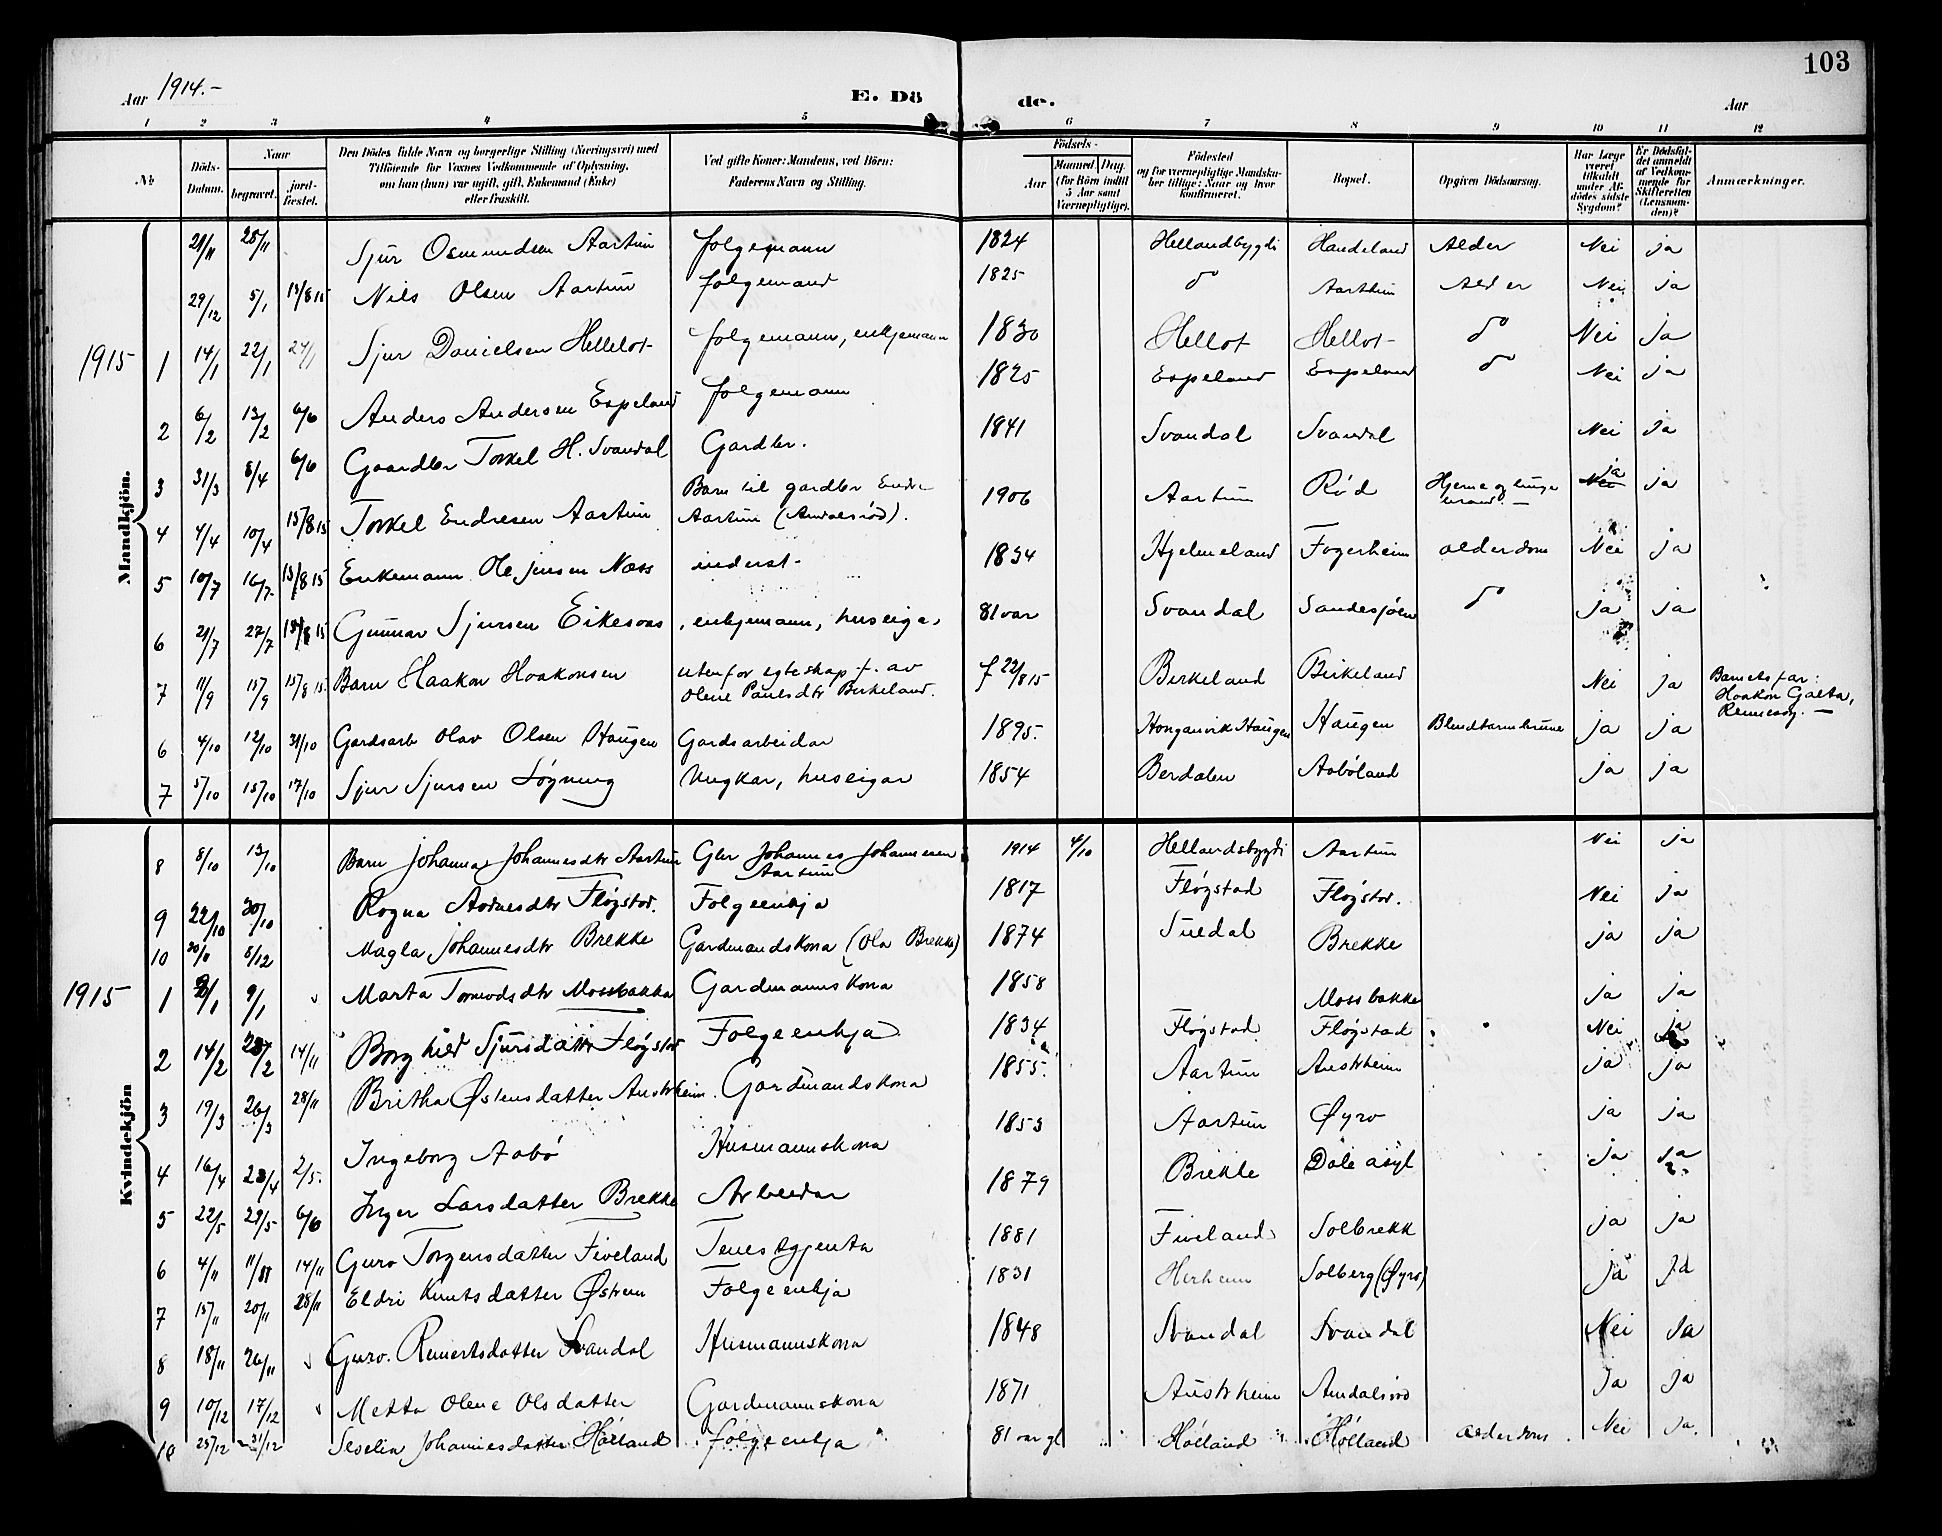 103
Aar 1914.- E. Dö de. Aar
1 2 3 4 5 6 7 8 9 10 11 12
No. Döds-Datum. Naar begravet. jord-fæstet. Den Dödes fulde Navn og borgerlige Stilling (Næringsvei) med Tilföiende for Voxnes Vedkommende af Oplysning, om han (hun) var ugift, gift, Enkemand (Enke) eller fraskilt. Ved gifte Koner: Mandens, ved Börn: Faderens Navn og Stilling. Födsels- Aar Maaned Dag. (for Börn indtil 5 Aar samt Værnepligtige). Födested og for værnepligtige Mandskaber tillige: Naar og hvor konfirmeret. Bopæl. Opgiven Dödsaarsag. Har Læge været tilkaldt under Afdödes sidste Sygdom? Er Dödsfaldet anmeldt af Vedkommende for Skifteretten (Lensmanden)? Anmærkninger.
Mandkjön.
21/11 28/11 Sjur Osmundsen Aartun folgemann 1824 Hellandbygdi Handeland Alder Nei ja
29/12 5/1 15/8 15 Nils Olsen Aartun folgemand 1825 do Aarthun Alder Nei ja
1915 1 14/1 22/1 24/1 Sjur Danielsen Hellelot folgemann, enkjemann 1830 Hellot Hellot do Nei ja
2 6/2 13/2 6/6 Anders Andersen Espeland folgemann 1825 Espeland Espeland do Nei ja
3 31/3 8/4 6/6 Gaardbr Torkel H. Svandal Gardbr. 1841 Svandal Svandal Nei ja
4 4/4 10/4 15/8 15 Torkel Endresen Aartun Barn til gardbr Endre Aartun (Amdalsrød). 1906 Aartun Rød Hjerne og lunge brand. - Nei ja ja
5 10/7 16/7 15/8 15 Enkemann Ole Jensen Næss inderst- 1834 Hjelmeland Fogerheim alderdom Nei ja
6 21/7 27/7 15/8 15 Gunnar Sjursen Eikesaas, enkjemann, huseigar 81 aar Svandal Sandesjøen do ja ja
7 11/9 15/9 15/8 15 Barn Haakon Haakonsen utenfor egteskap f. av Olene Paulsdtr Birkeland. f 22/8 15 Birkeland Birkeland Nei ja Barnets far: Haakon Galta, Rennesøy. -
6 4/10 12/10 31/10 Gardsarb Olav Olsen Haugen Gardsarbeidar 1895. Honganvik Haugen Haugen Blendtarmbrune ja ja
7 5/10 15/10 17/10 Sjur Sjursen Løgning Ungkar, huseigar 1854 Berdalen Aabøland ja ja
Kvindekjön
8 8/10 13/10 Barn Johanna Johannesdtr Aartun Gbr Johannes Johannesen Aartun 1914 4/10 Hellandsbygdi Aartun Nei ja
9 22/10 30/10 Ragna Aadnesdtr Fløgstad. Folgeenkja 1817 Fløgstad Fløgstad. Nei ja
10 30/11 8/12 Magla Johannesdtr Brekke Gardmandskona (Ola Brekke) 1874 Suldal Brekke ja ja
1915 1 2/1 9/1 Marta Tormodsdtr Mossbakka Gardmannskona 1858 Mossbakke ja ja
2 14/2 23/2 14/11 Borghild Sjursdatr Fløgstad Folgeenkja 1834 Fløgstad Fløgstad Nei ja
3 19/3 26/3 28/11 Britha Østensdatter Austrheim. Gardmandskona 1855. Aartun Austrheim ja ja
4 16/4 23/4 2/5. Ingeborg Aabø Husmannskona 1853 Aartun Øyro ja ja
5 22/5 29/5 6/6 Inger Larsdatter Brekke Arbeidar 1879 Brekke Dale asyl ja ja ?
6 4/11 11/11 14/11 Guro Torgersdatter Fiveland Tenestgjenta 1881 Fiveland Solbrekk ja ja
7 15/11 20/11 28/11 Eldri Knutsdatter Østrem Folgeenkja 1831 Herheim Solberg (Øyro) ja ja
8 18/11 26/11 Guro. Reinertsdatter Svandal Husmannskona 1848 Svandal Svandal Nei ja
9 10/12 17/12 Metta Olene Olsdatter Gardmannskona 1871 Austrheim Amdalsrød ja ja
10 25/12 31/12 Seselia Johannesdatter Høiland folgeenkja 81 aar gl Høiland Høiland alderdom. Nei ja.